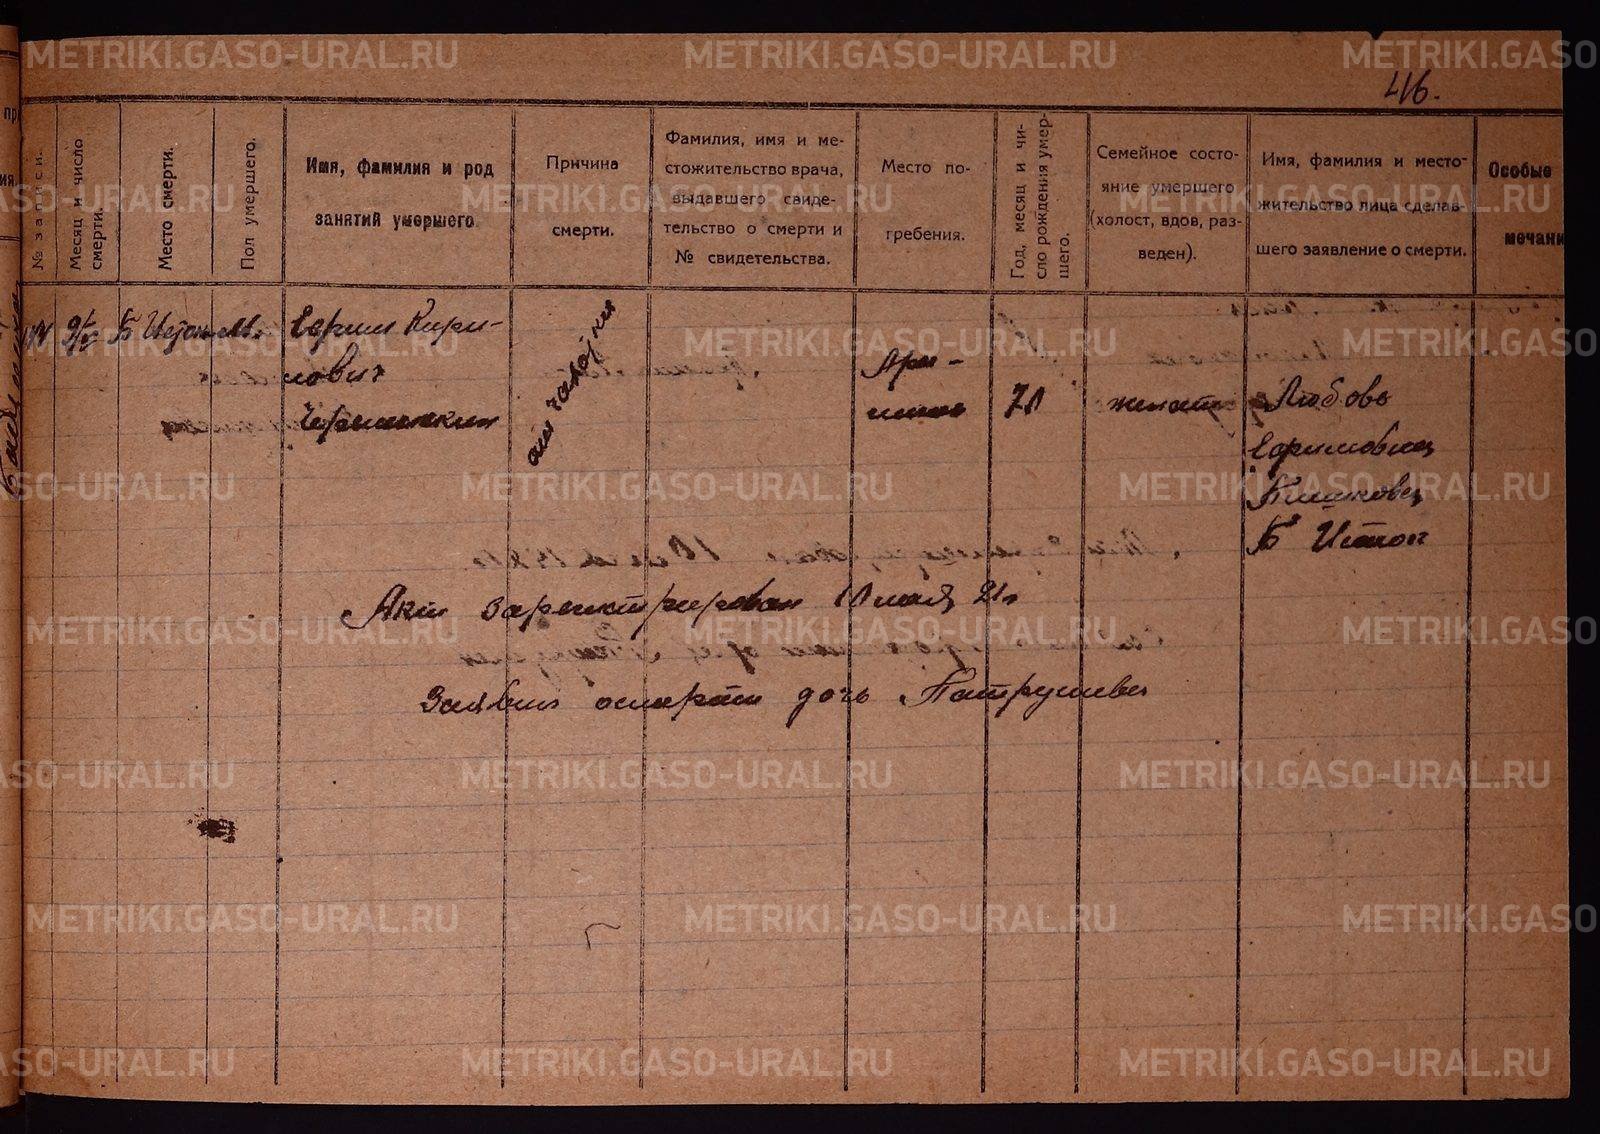 METRIKI.GASO-URAL.RU
416.
№ записи.
Месяц и число
смерти.
Место смерти.
Пол умершего.
Имя, фамилия и род
занятий умершего.
Причина
смерти.
Фамилия, имя и ме-
стожительство врача,
выдавшего свиде-
тельство о смерти и
№ свидетельства.
Место по-
гребения.
Год, месяц и чи-
сло рождения умер-
шего.
Семейное состо-
яние умершего
(холост, вдов, раз-
веден).
Имя, фамилия и место-
жительство лица сделав-
шего заявление о смерти.
Особые
мечани
9/V
Б Исток
М.
Ефрим Кири-
лович
72
женат
Любовь
Ефримовна
Б Исток
Акт зарегистрирован 10 мая 21г
Заявил осмерти дочь Патрушева